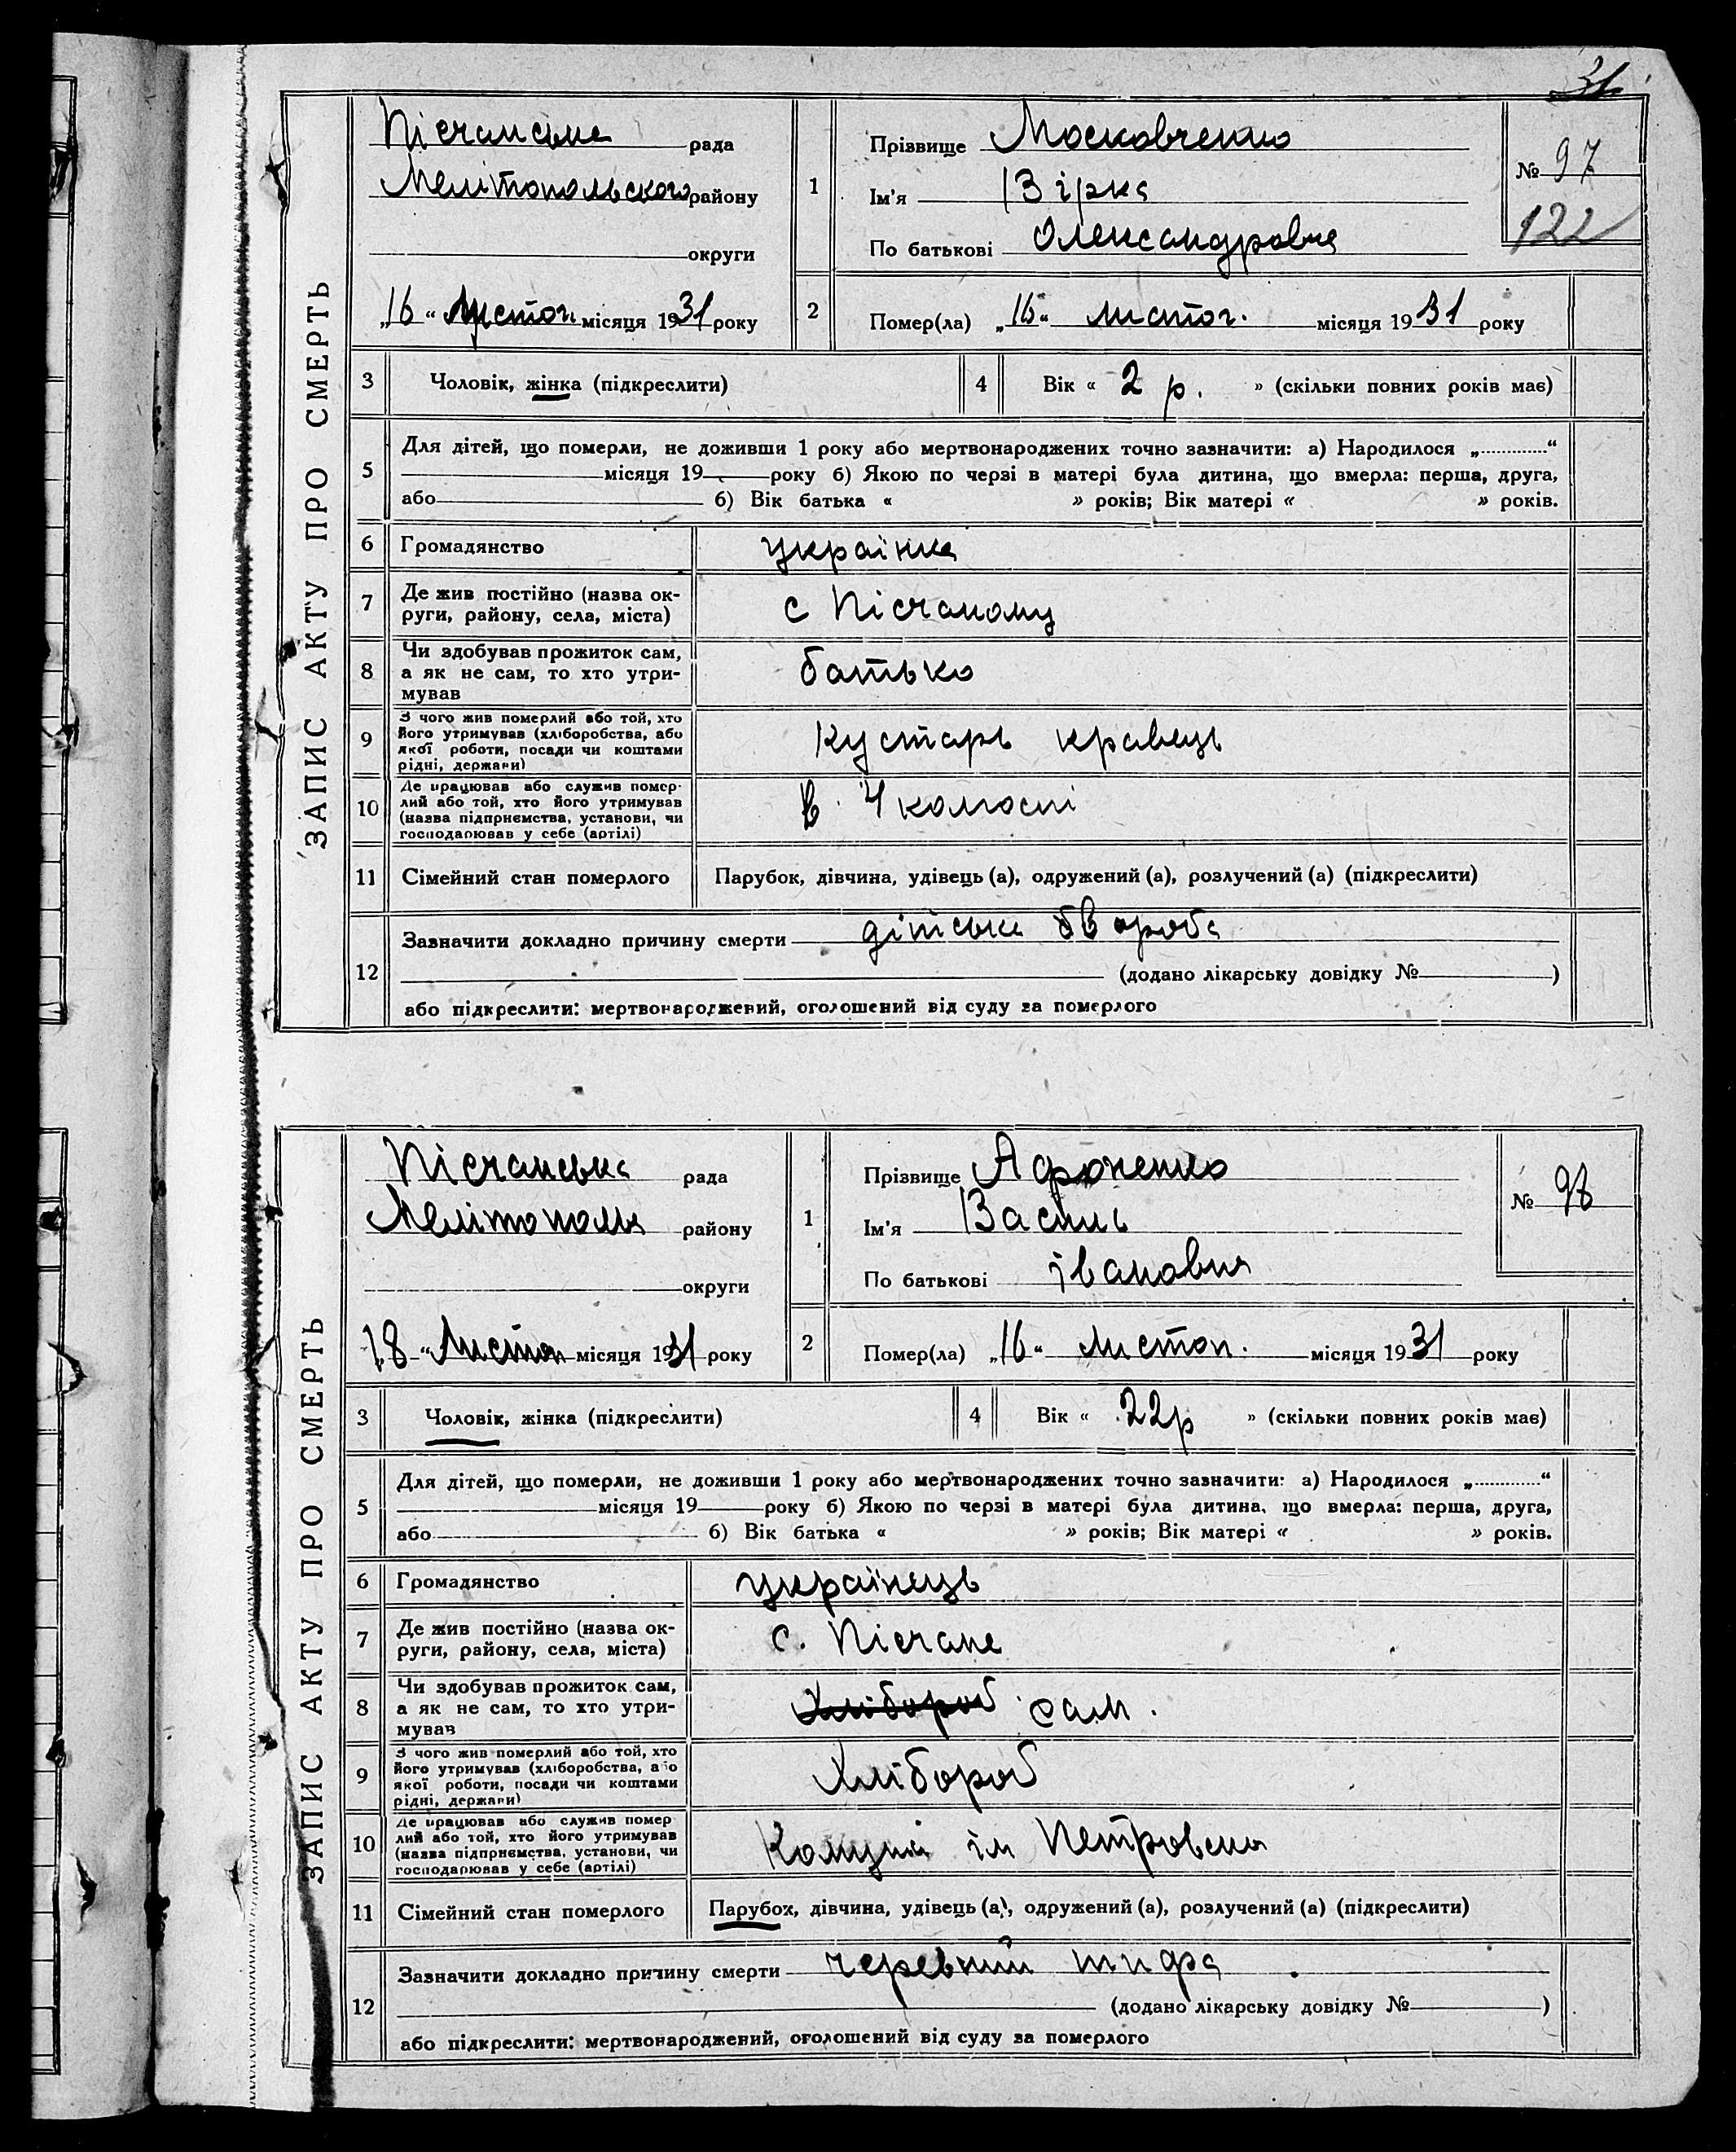 31
ЗАПИС АКТУ ПРО СМЕРТЬ
Пісчанська рада
Мелітопольского району
округи
„16“ Листоп. місяця 1931 року
1
Прізвище Московченко
Ім'я Вірка
По батькові Олександровна
№ 97
122
2
Помер(ла) „16“ листоп. місяця 1931 року
3 Чоловік, жінка (підкреслити)
4 Вік « 2 р. » (скільки повних років має)
5
Для дітей, що померли, не доживши 1 року або мертвонароджених точно зазначити: а) Народилося „.............“
місяця 19 року б) Якою по черзі в матері була дитина, що вмерла: перша, друга,
або б) Вік батька « » років; Вік матері « » років.
6 Громадянство українка
7 Де жив постійно (назва ок-
руги, району, села, міста)
с Пісчаному
8 Чи здобував прожиток сам,
а як не сам, то хто утри-
мував
батько
9 З чого жив померлий або той, хто
його утримував (хліборобства, або
якої роботи, посади чи коштами
рідні, держави)
Кустарь кравець
10 Де працював або служив помер-
лий або той, хто його утримував
(назва підприємства, установи, чи
господарював у себе (артілі)
в колгоспі
11 Сімейний стан померлого Парубок, дівчина, удівець (а), одружений (а), розлучений (а) (підкреслити)
12
Зазначити докладно причину смерти дітська
(додано лікарську довідку № )
або підкреслити: мертвонароджений, оголошений від суду за померлого
ЗАПИС АКТУ ПРО СМЕРТЬ
Пісчанська рада
Мелітополя району
округи
„18“ Листоп місяця 1931 року
1
Прізвище Афоненко
Ім'я Василь
По батькові івановия
№ 98
2
Помер(ла) „16“ листоп. місяця 1931 року
3 Чоловік, жінка (підкреслити)
4 Вік « 22р » (скільки повних років має)
5
Для дітей, що померли, не доживши 1 року або мертвонароджених точно зазначити: а) Народилося „.............“
місяця 19 року б) Якою по черзі в матері була дитина, що вмерла: перша, друга,
або б) Вік батька « » років; Вік матері « » років.
6 Громадянство українець
7 Де жив постійно (назва ок-
руги, району, села, міста)
с. Пісчане
8 Чи здобував прожиток сам,
а як не сам, то хто утри-
мував
Хлібороб сам.
9 З чого жив померлий або той, хто
його утримував (хліборобства, або
якої роботи, посади чи коштами
рідні, держави)
Хлібороб
10 Де працював або служив помер
лий або той, хто його утримував
(назва підприємства, установи, чи
господарював у себе (артілі)
ім Петровська
11 Сімейний стан померлого Парубок, дівчина, удівець (а), одружений (а), розлучений (а) (підкреслити)
12
Зазначити докладно причину смерти черевний тифа
(додано лікарську довідку № )
або підкреслити: мертвонароджений, оголошений від суду за померлого